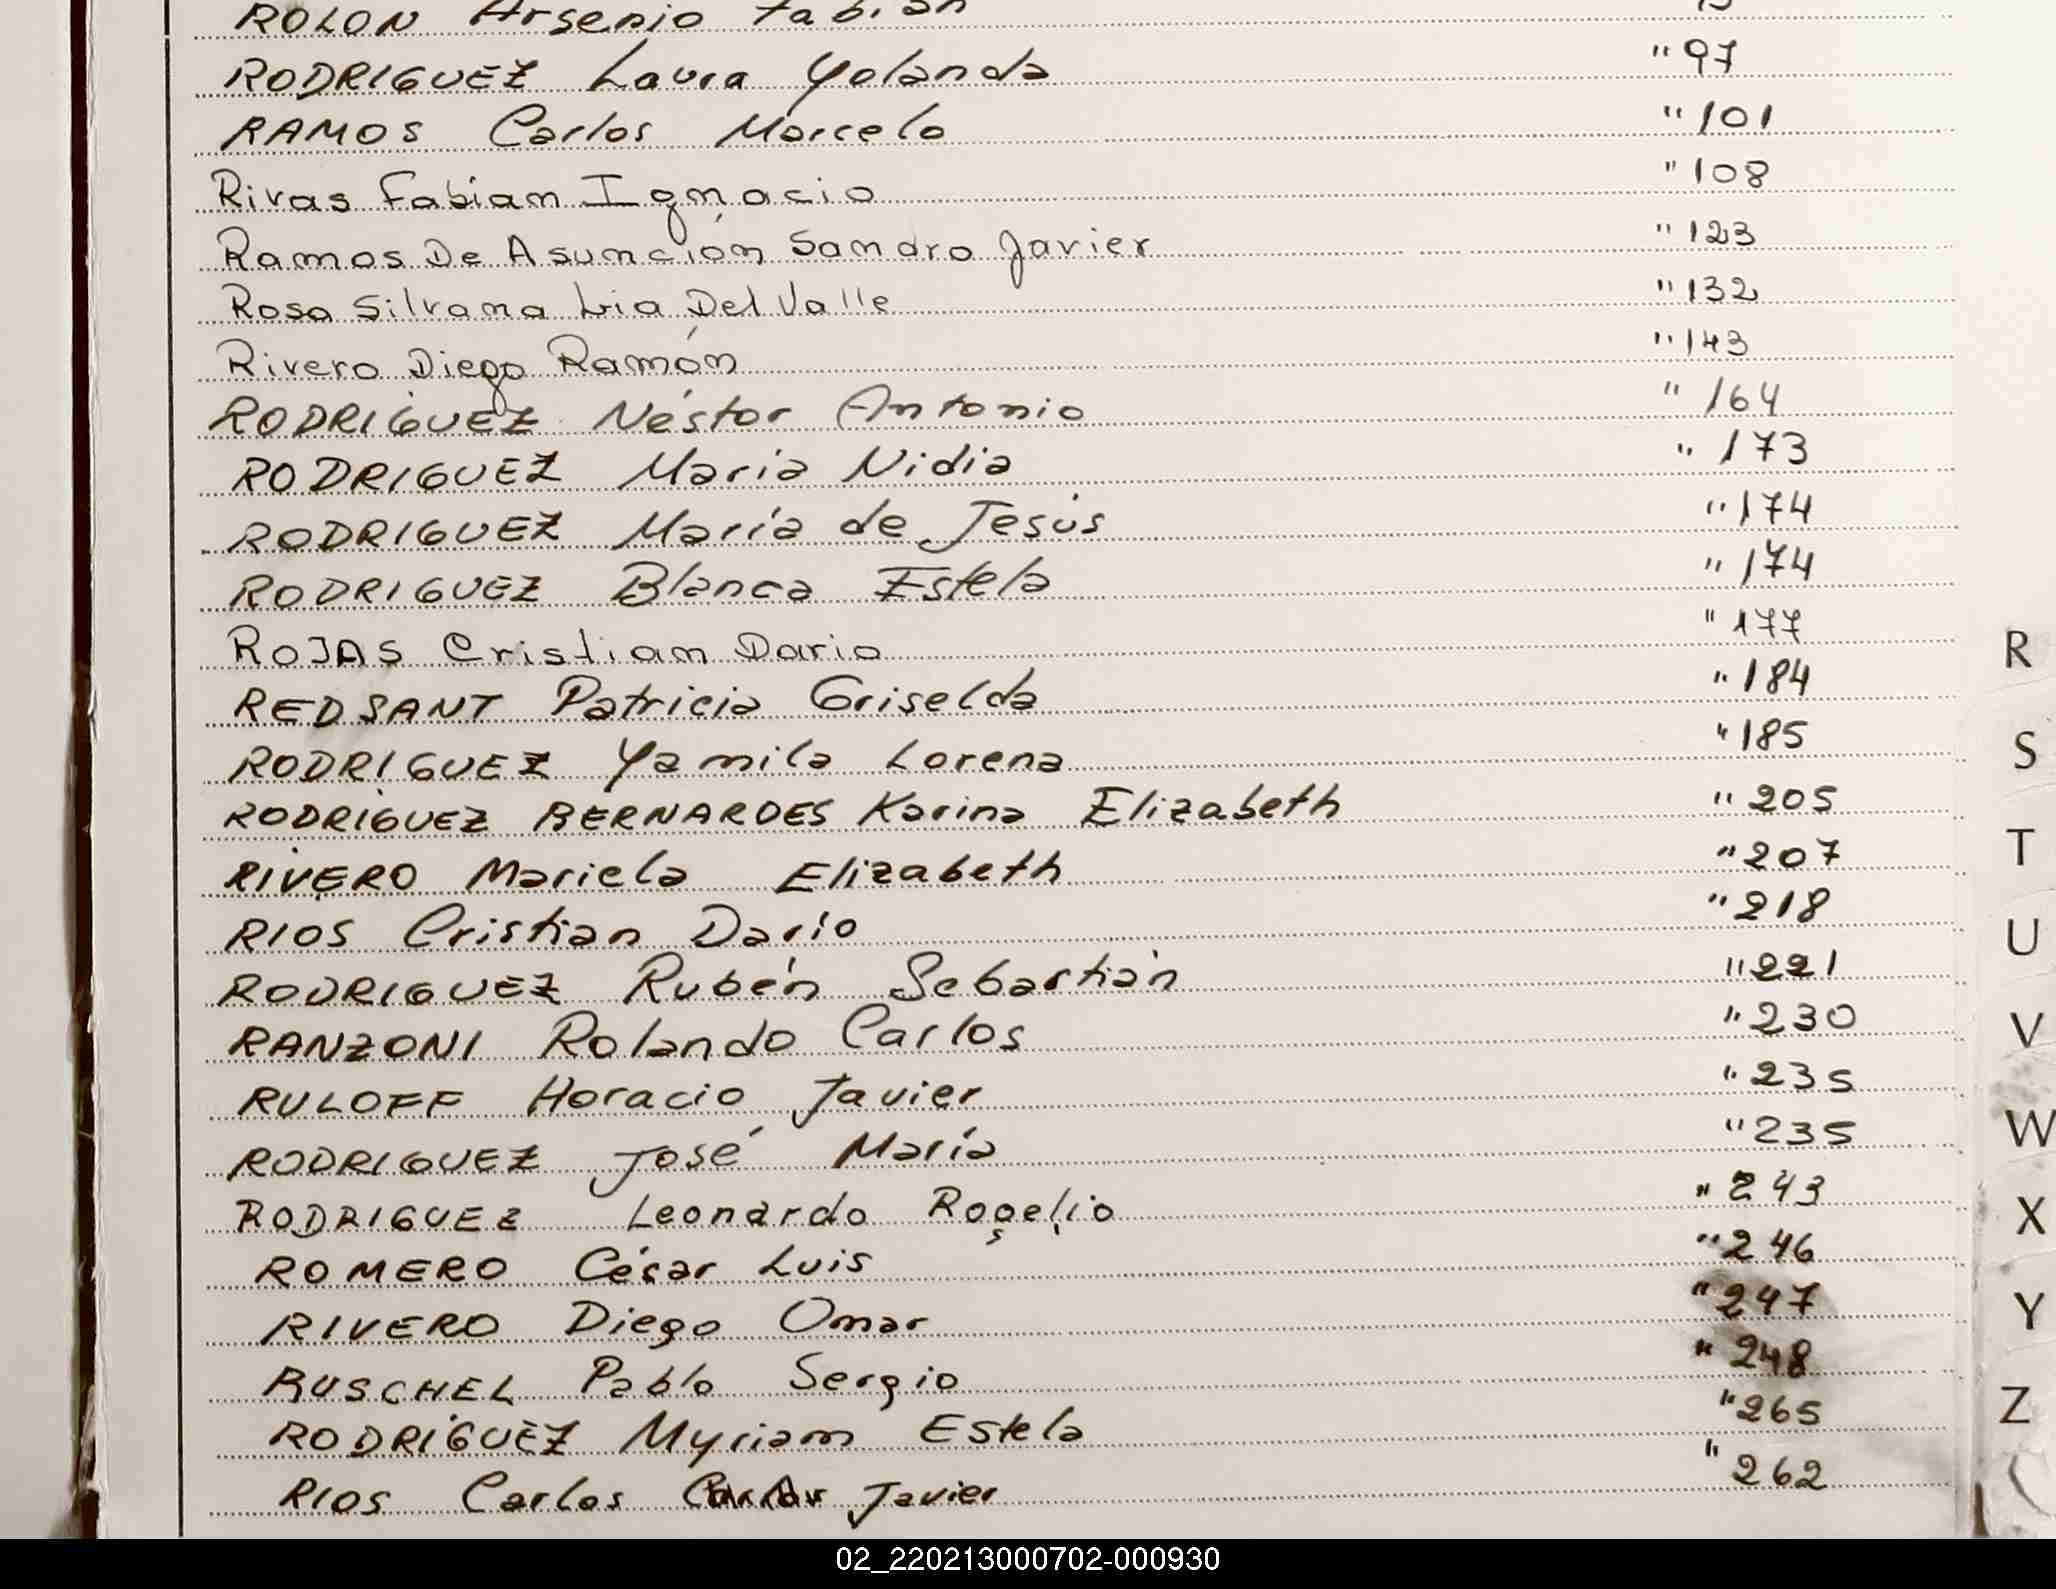 ROLON Arsenio Fabián
RODRIGUEZ Laura Yolanda " 97
RAMOS Carlos Marcelo " 101
Rivas Fabian Ignacio " 108
Ramos De Asunción Sandro Javier " 123
Rosa Silvana Lia Del Valle " 132
Rivero Diego Ramón " 143
RODRÍGUEZ Néstor Antonio " 164
RODRIGUEZ María Nidia " 173
RODRIGUEZ María de Jesús " 174
RODRIGUEZ Blanca Estela " 174
ROJAS Cristian Dario " 177
REDSANT Patricia Griselda " 184
RODRIGUEZ Yamila Lorena " 185
RODRÍGUEZ BERNARDES Karina Elizabeth " 205
RIVERO Mariela Elizabeth " 207
RIOS Cristian Darío " 218
RODRIGUEZ Rubén Sebastián " 221
RANZONI Rolando Carlos " 230
RULOFF Horacio Javier " 235
RODRIGUEZ José María " 235
RODRIGUEZ Leonardo Rogelio " 243
ROMERO César Luis " 246
RIVERO Diego Omar " 247
RUSCHEL Pablo Sergio " 248
RODRÍGUEZ Myriam Estela " 265
RIOS Carlos Javier " 262
R
S
T
U
V
W
X
Y
Z
02_220213000702-000930